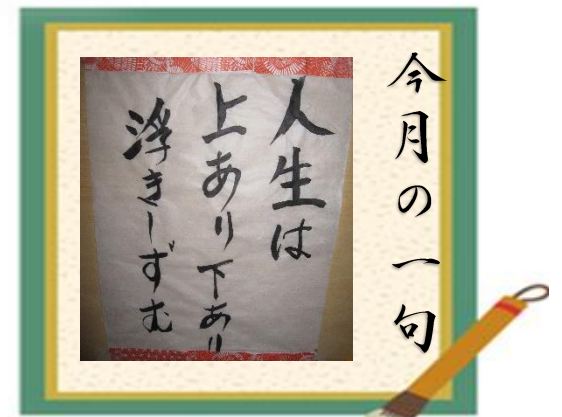 今月の一句
人生は
上あり下あり
浮きしずむ